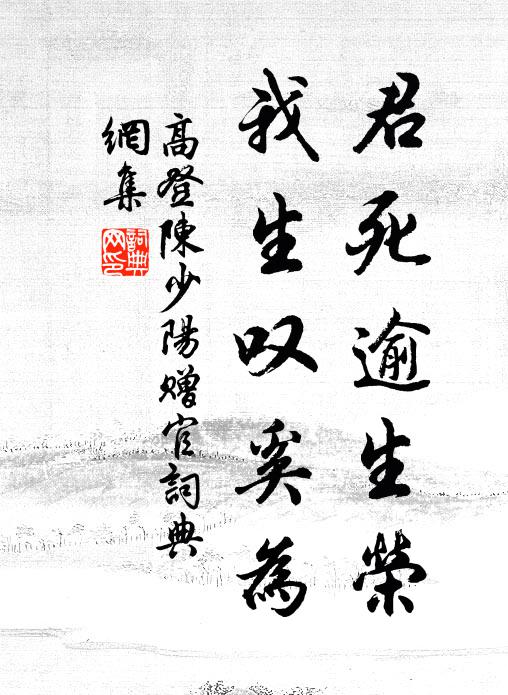 君死逾生榮
我生叹奚為
高登陳少陽贈官詞典
網集
詞典網印